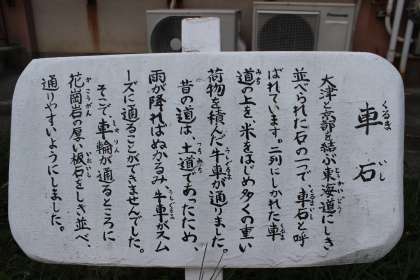 車石
くるま いし
大津と京都を結ぶ東海道にしき
並べられた石の一つで車石と呼
ばれています。二列にしかれた車
道の上を、米をはじめ多くの重い
荷物を積んだ牛車が通りました。
昔の道は、土道であったため
雨が降ればぬかるみ、牛車がスム
ーズに通ることができませんでした。
そこで、車輪が通るところに
花崗岩の厚い板石をしき並べ、
通りやすいようにしました。